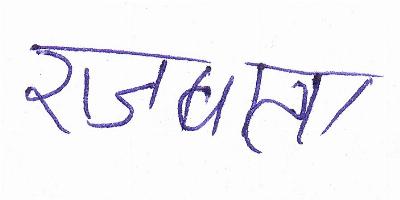 राजबाला